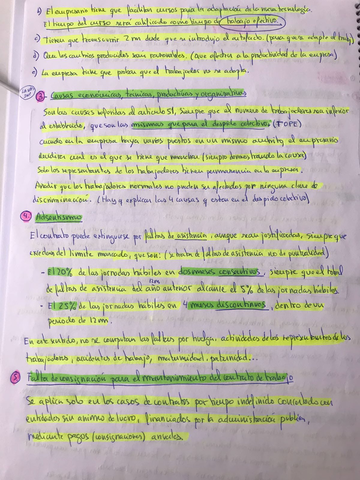 1) El empresario tiene que facilitar cursos para la adaptación de la nueva tecnología.
El tiempo del curso será calificado como tiempo de trabajo efectivo.
2) Tienen que transcurrir 2m desde que se introdujo el artefacto. (para que se adapte el trab)
3) Que los cambios producidos sean razonables. (que afecten a la productividad de la empresa)
4) La empresa tiene que probar que el trabajador no se adapta.
3. Causas económicas, técnicas, productivas y organizativas
Son las causas referidas al artículo 51, siempre que el número de trabajadores sea inferior
al establecido, que son las mismas que para el despido colectivo. (ETOPE)
cuando en la empresa haya varios puestos en un mismo ámbito el empresario
decidirá cuál es el que se tiene que marchar (siempre demostrando la causa)
Solo los representantes de los trabajadores tienen permanencia en la empresa.
Añadir que los trabajadores normales no pueden ser afectados por ninguna clase de
discriminación. (Hay q explicar las 4 causas y estan en el despido colectivo)
4. Absentismo
El contrato puede extinguirse por faltas de asistencia, aunque sean justificadas, siempre que
excedan del límite marcado, que son: (se tratan de faltas de asistencia no de puntualidad)
- El 20% de las jornadas hábiles en dos meses consecutivos, siempre que el total
de faltas de asistencia del año anterior alcance el 5% de las jornadas hábiles
12m
- El 25% de las jornadas hábiles en 4 meses discontinuos, dentro de un
periodo de 12m.
En este sentido, no se computan las faltas por huelga, actividades de los representantes de los
trabajadores, accidentes de trabajo, maternidad, paternidad...
5. Falta de consignación para el mantenimiento del contrato de trabajo
Se aplica solo en los casos de contratos por tiempo indefinido concertado con
entidades sin ánimo de lucro, financiados por la administración pública,
mediante pagos (consignaciones) anuales.